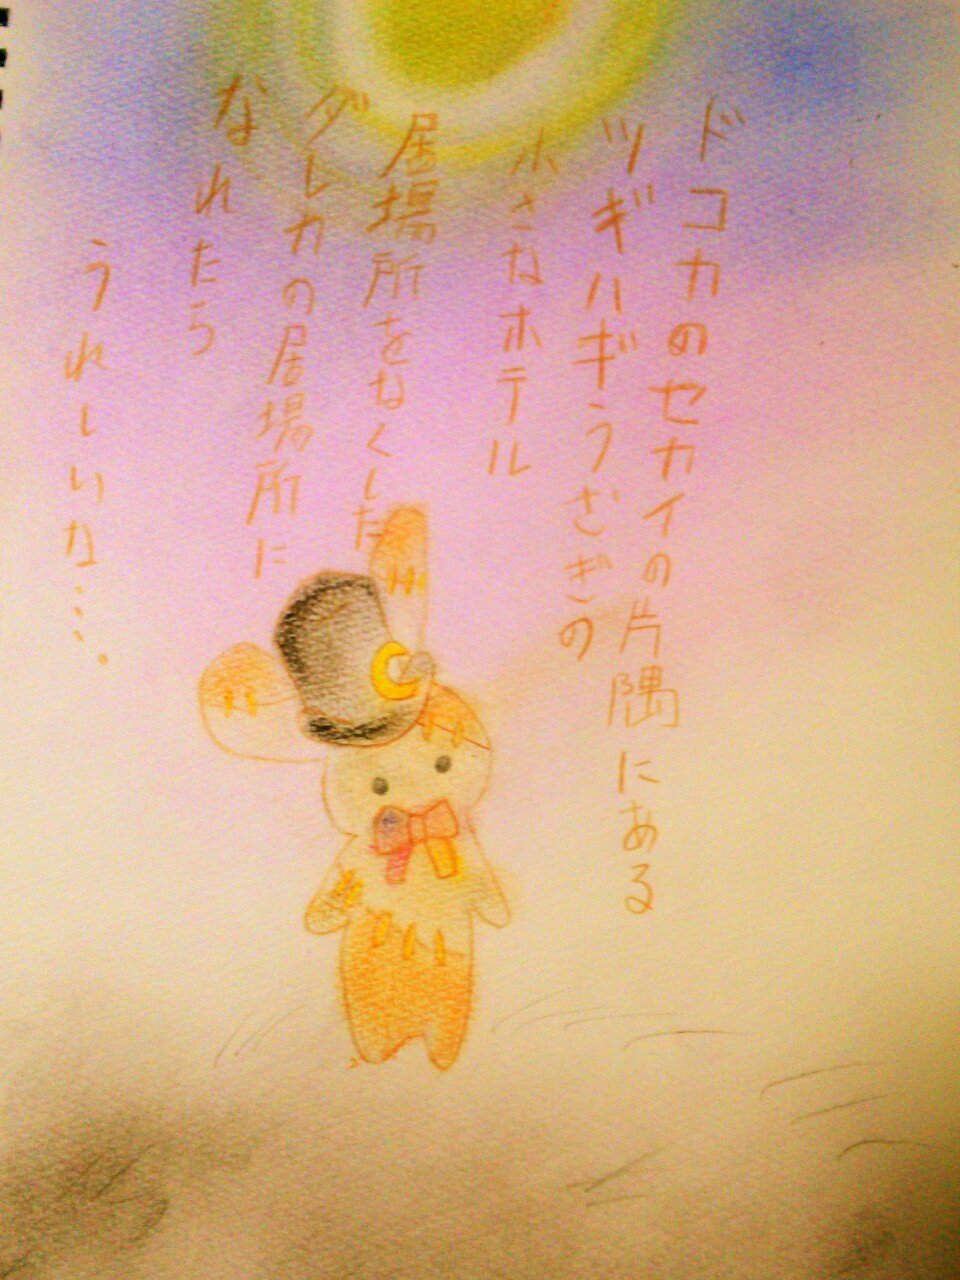 ドコカのセカイの片隅にある
ツギハギうさぎの
小さなホテル
居場所をなくした
ダレカの居場所に
なれたら
うれしいな…